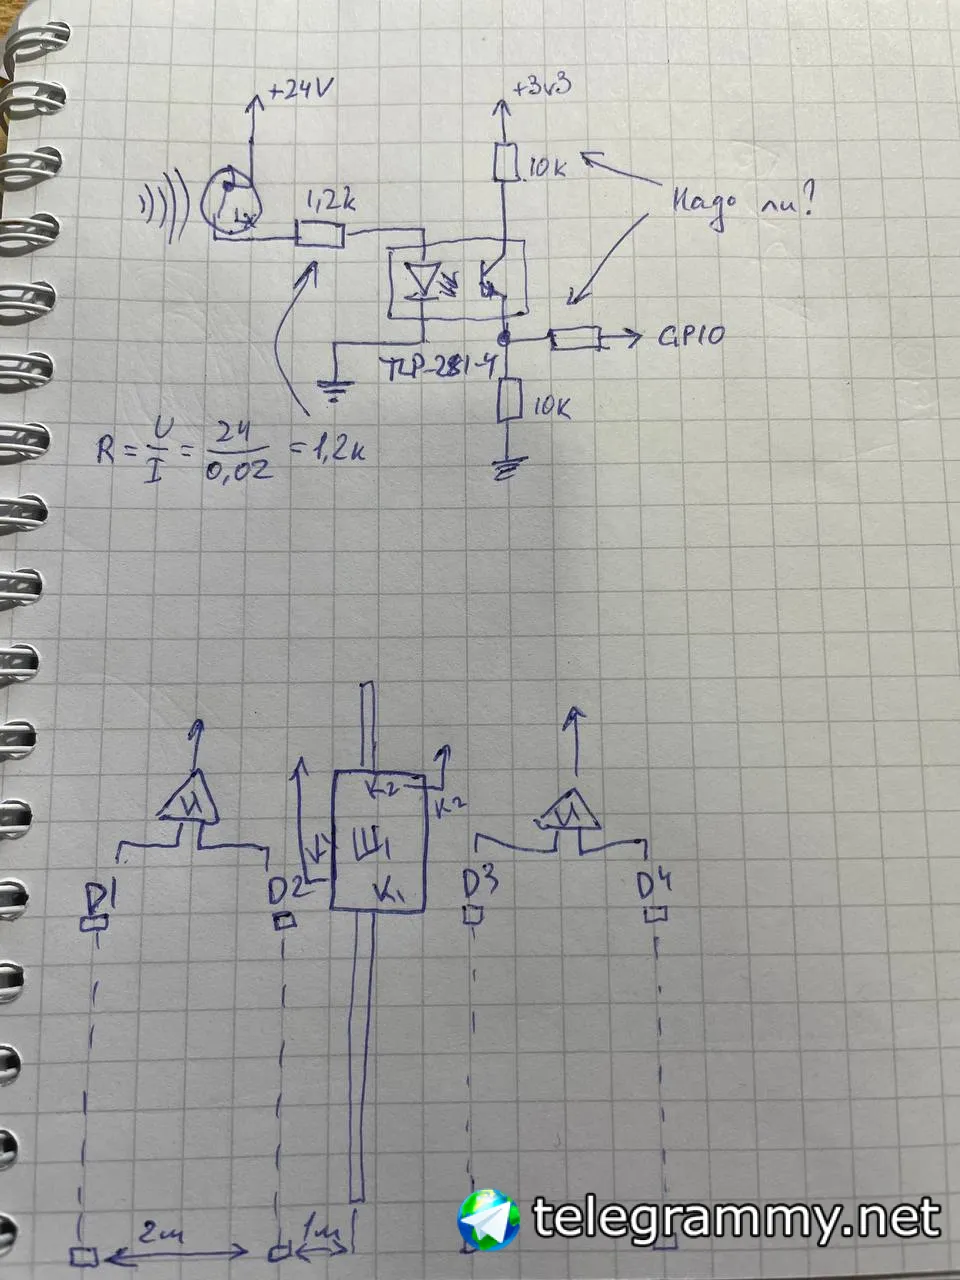 +24V
+3v3
10к
1,2к
Надо ли?
GPIO
TLP-281-4
10к
R = U/I = 24/0,02 = 1,2к
И
К2
К2
И
Ш1
D1
D2
К1
D3
D4
2м
1м
telegrammy.net